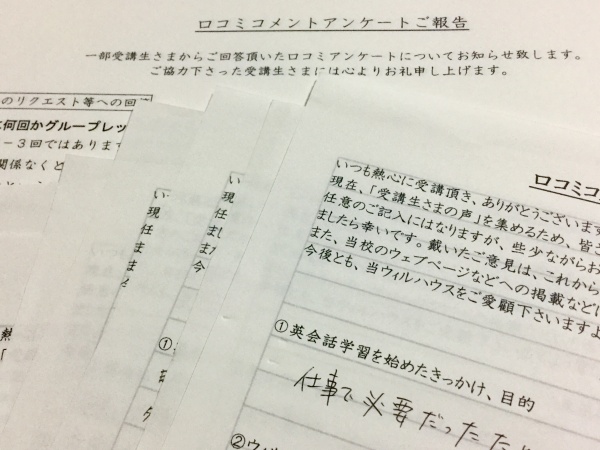 口コミコメントアンケートご報告
一部受講生さまからご回答頂いた口コミアンケートについてお知らせ致します。
ご協力下さった受講生さまには心よりお礼申し上げます。
のリクエスト等への回
に何回かグループレッ
－３回ではあります
関係なくと
い
現
任
ま
ま
い
現
任
まし
また
今
①
口コミコ
いつも熱心に受講頂き、ありがとうございます
現在、「受講生さまの声」を集めるため、皆さ
任意のご記入にはなりますが、些少ながらお
ましたら幸いです。戴いたご意見は、これから
また、当校のウェブページなどへの掲載などに
今後とも、当ウィルハウスをご愛顧下さいますよ
①英会話学習を始めたきっかけ、目的
仕事で必要だったた
②ウィ